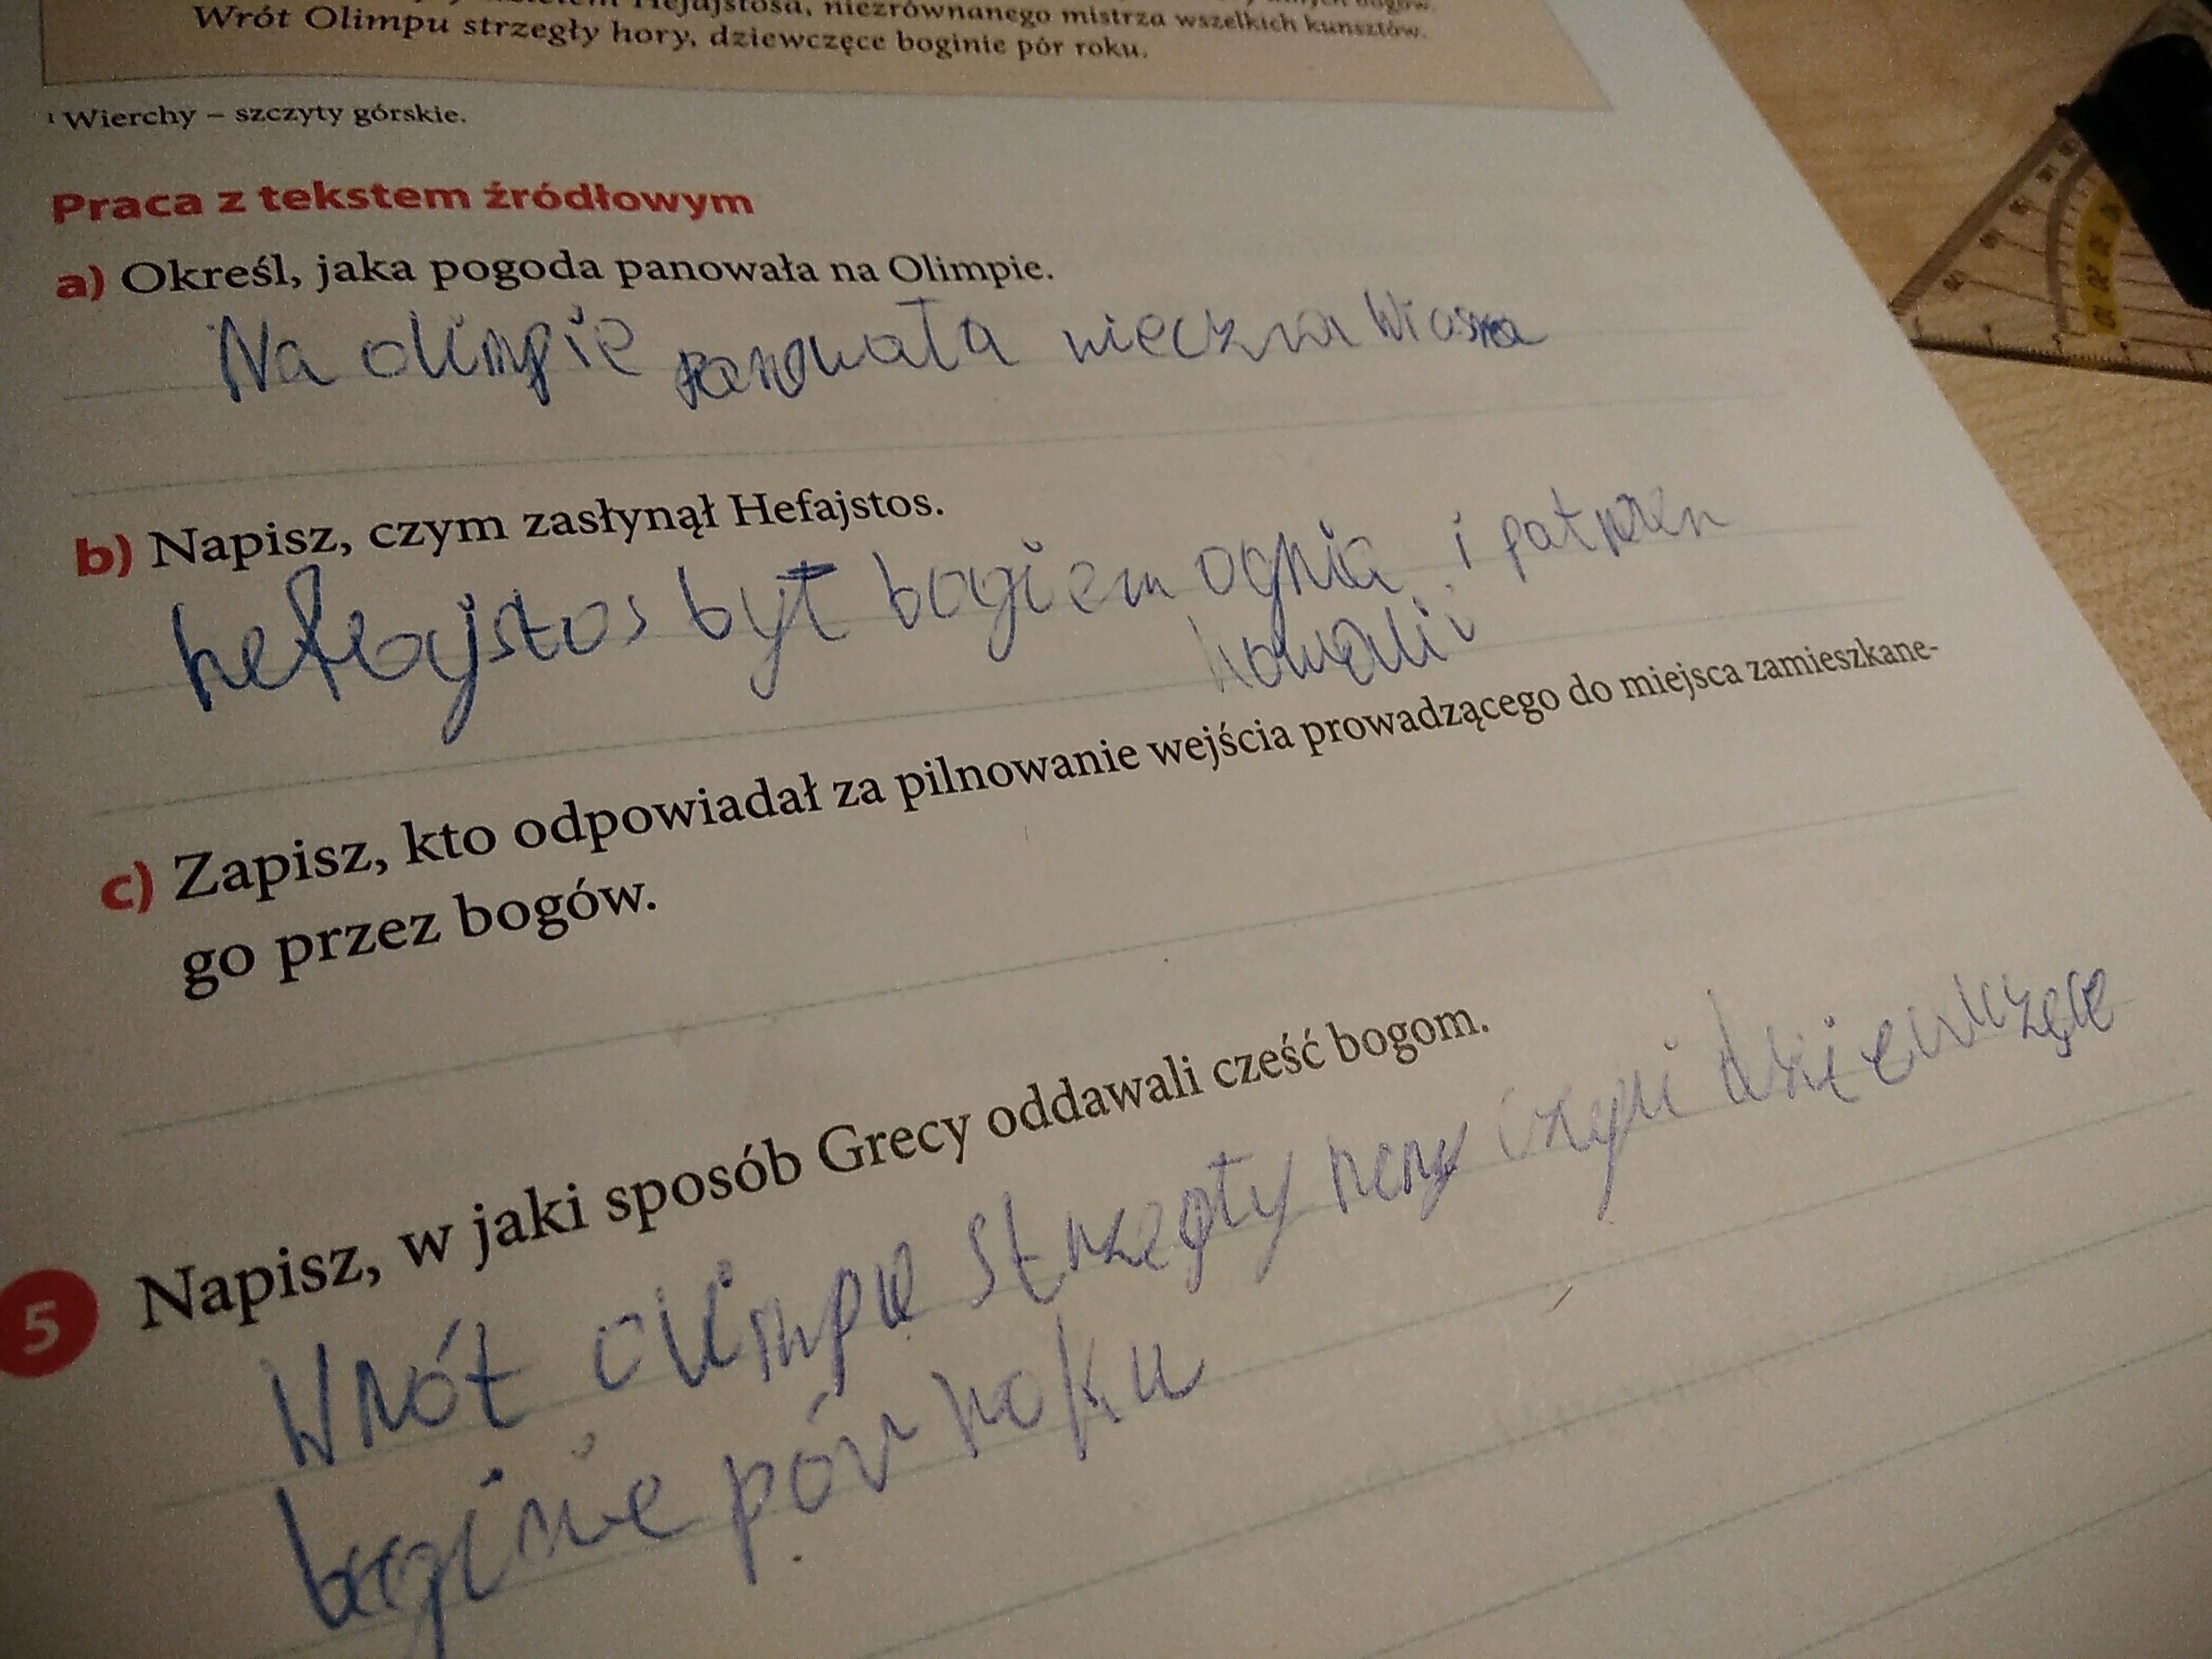 Hefajstosa, niezrównanego mistrza wszelkich kunsztów.
Wrót Olimpu strzegły hory, dziewczęce boginie pór roku.
1 Wierchy – szczyty górskie.
Praca z tekstem źródłowym
a) Określ, jaka pogoda panowała na Olimpie.
Na olimpie panowała wieczna Wiosna
b) Napisz, czym zasłynął Hefajstos.
hefajstos był bogiem ognia i patron
kowali
c) Zapisz, kto odpowiadał za pilnowanie wejścia prowadzącego do miejsca zamieszkane-
go przez bogów.
5 Napisz, w jaki sposób Grecy oddawali cześć bogom.
Wrót olimpu strzegły hery czyli dziewczęce
boginie pór roku